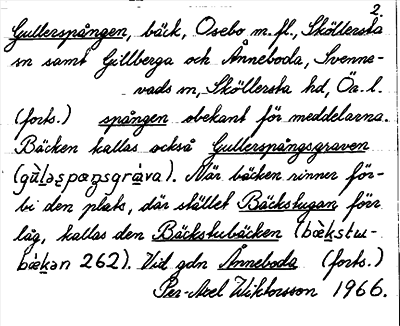 2.
Gullerspången, bäck, Osebo m.fl., Sköllersta
sn samt Gillberga och Ånneboda, Svenne-
vads sn, Sköllersta hd, Öa.l.
(forts.) spången obekant för meddelarna.
Bäcken kallas också Gullerspångsgraven
När bäcken rinner för-
bi den plats, där stället Bäckstugan förr
låg, kallas den Bäckstubäcken (bœ̀kstu-
bœ̀kən 262). Vid gdn Ånneboda (forts.)
Per-Axel Wiktorsson 1966.